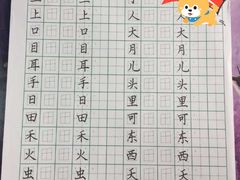 上 上 人 人
口 口 大 大
目 目 月 月
耳 耳 儿 儿
手 手 头 头
日 日 里 里
田 田 可 可
禾 禾 东 东
火 火 西 西
虫 虫 天 天